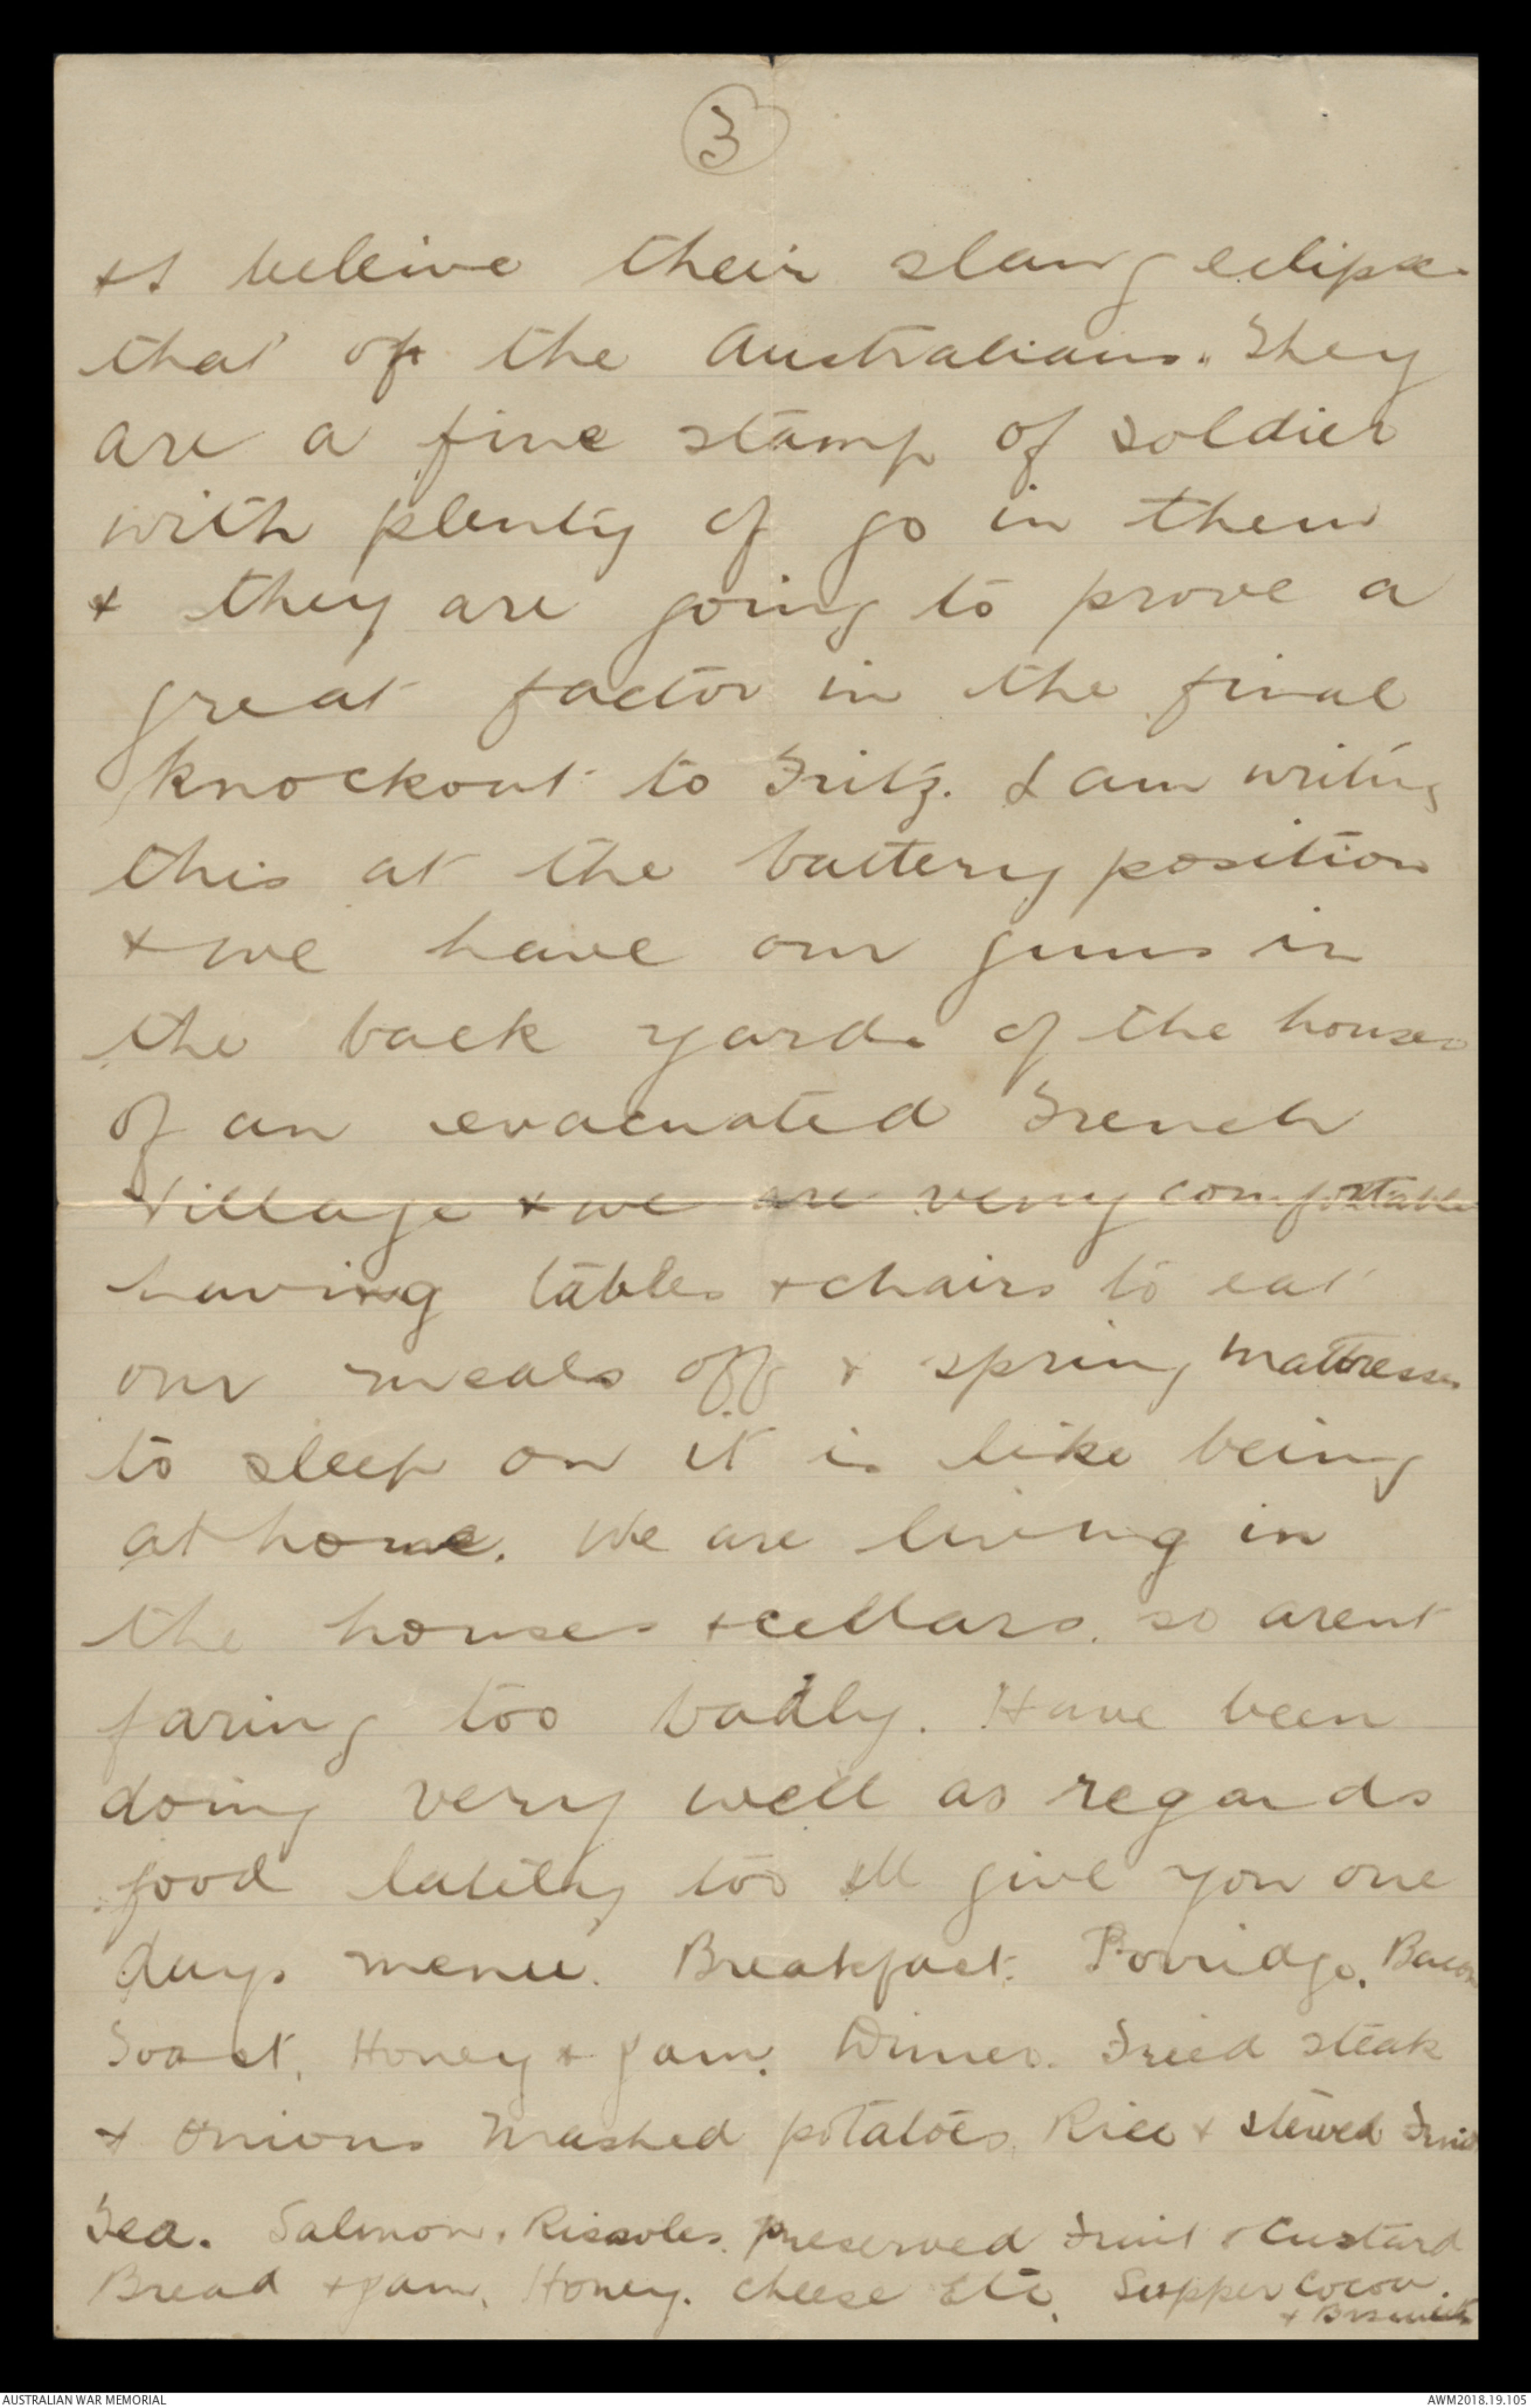 3
& I beleive their slang eclipse
that of the Australians. They
are a fine stamp of soldier
with plenty of go in them
& they are going to prove a
great factor in the final
knockout to Fritz. I am writing
this at the battery position
& we have our guns in
the back yards of the houses
of an evacuated French
Village & we are very comfortable
having tables & chairs to eat
our meals off & spring mattresses
to sleep on it is like being
at home. We are living in
the houses & cellars. so arent
faring too badly. Have been
doing very well as regards
food lately too Ill give you one
days menu. Breakfast. Porridge. Bacon
Toast. Honey & Jam. Dinner. Fried steak
& Onions Mashed potatoes. Rice & stewed Fruit
Tea. Salmon. Rissoles. Preserved Fruit & Custard
Bread & jam. Honey. Cheese Etc. Supper Cocoa.
& Biscuits
AUSTRALIAN WAR MEMORIAL
AWM2018.19.105